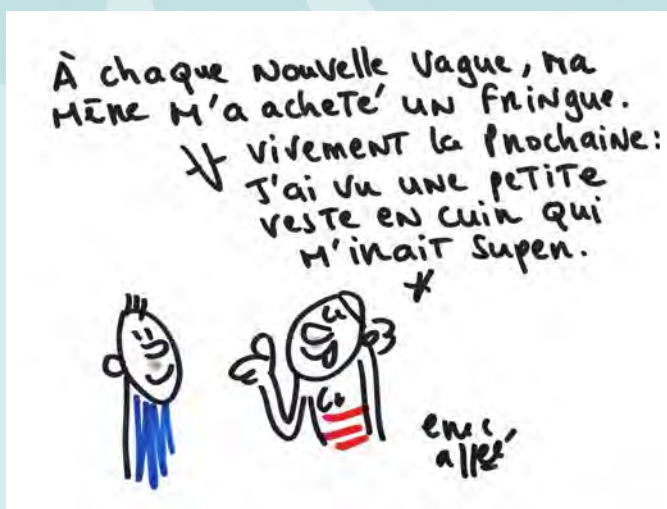 À chaque nouvelle vague, ma
mère m'a acheté un fringue.
vivement la prochaine:
J'ai vu une petite
veste en cuir qui
m'irait super.